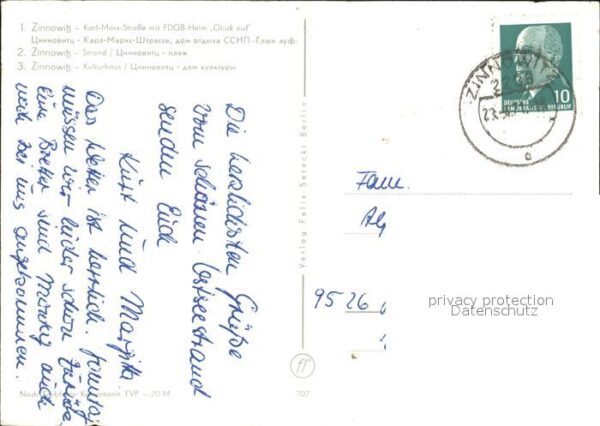 1. Zinnowitz – Karl-Marx-Straße mit FDGB-Heim „Glück auf"
Цинновитц - Карл-Маркс-Штрассе, дом отдыха ССНП -Глюк ауф-
2. Zinnowitz - Strand / Цинновитц - пляж
3. Zinnowitz - Kulturhaus / Цинновитц - дом культуры
Die herzlichsten Grüße
vom schönen Ostseestrand
senden Euch
Kurt und Margita.
Das Wetter ist herrlich. Sonntag
müssen wir leider schon zurück.
Eure Bretter sind Montag auch
noch bei uns angekommen.
Verlag Felix Setecki Berlin
ZINNOWITZ
10
DEUTSCHE
DEMOKRATISCHE REPUBLIK
e
Fam.
9526
privacy protection
Datenschutz
EVP –.20 M
707